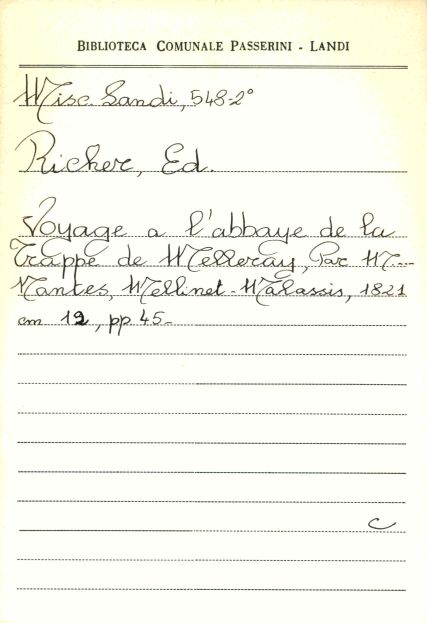 BIBLIOTECA COMUNALE PASSERINI - LANDI
Misc. Landi, 548-2°
Richer, Ed.
Voyage a l'abbaye de la
Trappe de Melleray, Par M....
Nantes, Mellinet-Malassis, 1821
cm 12, pp. 45-
C